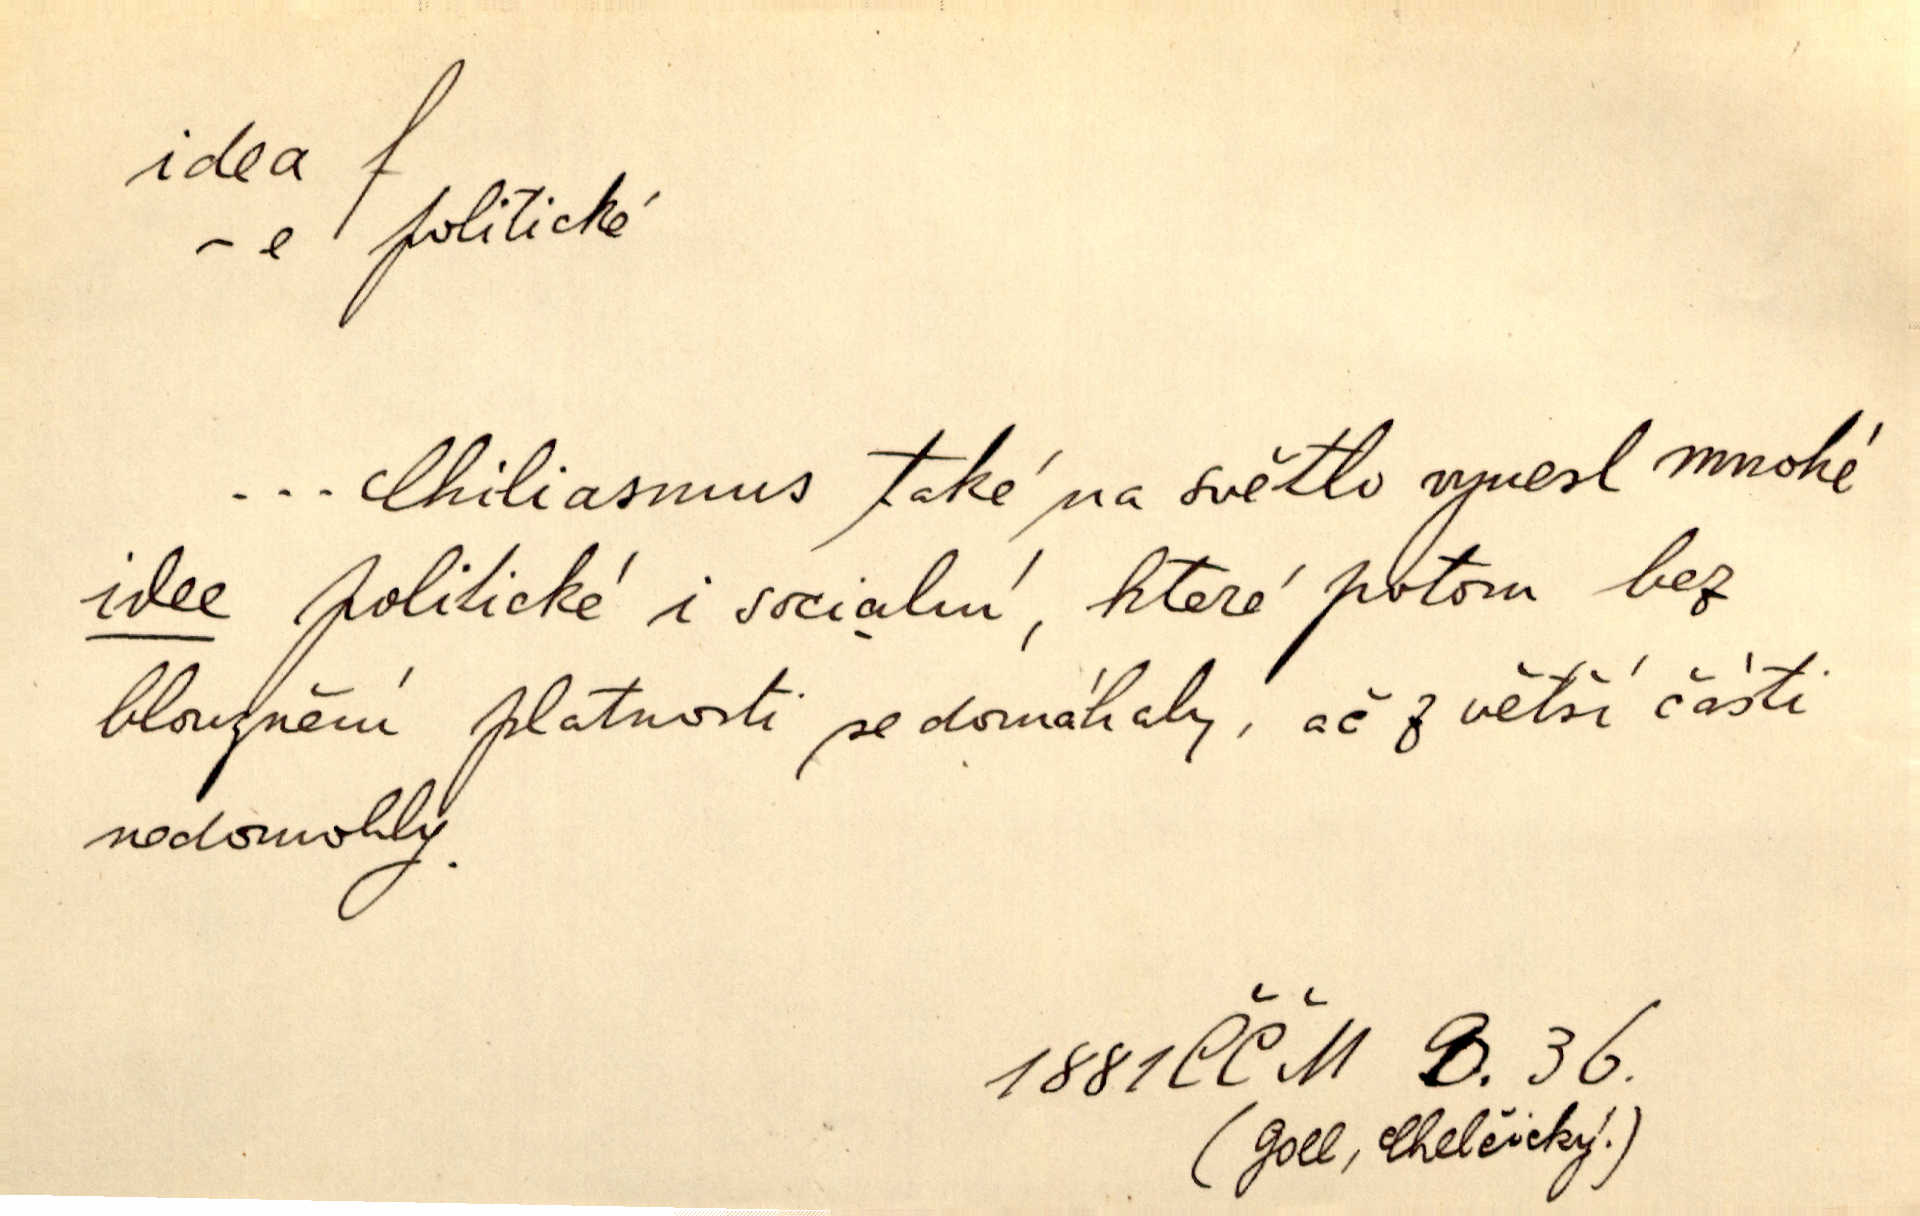 idea f
- e politické
... Chiliasmus také na světlo vynesl mnohé
idee politické i socialní, které potom bez
blouznění platnosti se domáhaly, ač z větší části
nedomohly.
1881 ČČM 36.
(Goll, Chelčický.)